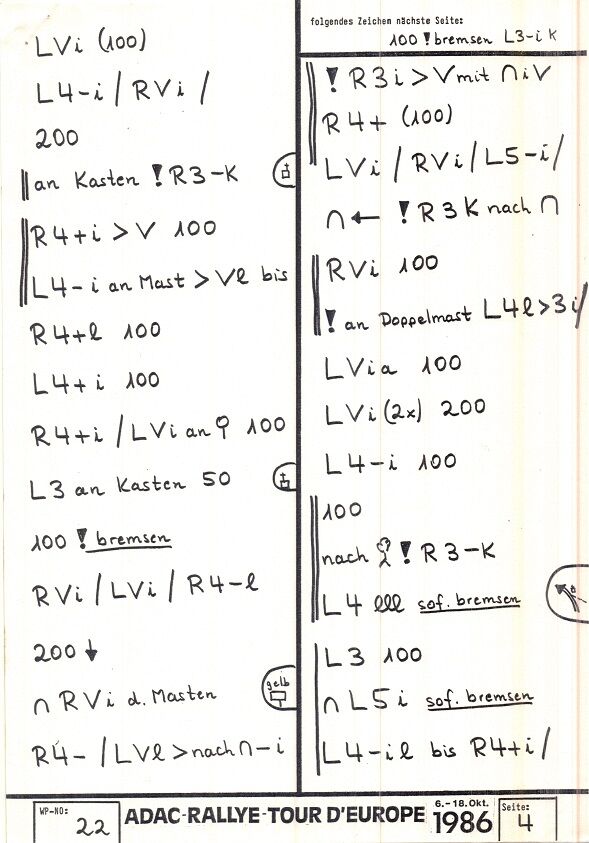 LVi (100)
L4-i / RVi /
200
an Kasten ! R3-K
R4+i > V 100
L4-i an Mast > Vl bis
R4+l 100
L4+i 100
R4+i / LVi an 100
L3 an Kasten 50
100 ! bremsen
RVi / LVi / R4-l
200 ↓
gelb
∩ RVi d. Masten
R4- / LVl > nach ∩-i
folgendes Zeichen nächste Seite:
100 ! bremsen L3-i K
! R3i > V mit ∩ i V
R4+ (100)
LVi / RVi / L5-i /
∩ ← ! R3K nach ∩
RVi 100
! an Doppelmast L4l>3i/
LVia 100
LVi (2x) 200
L4-i 100
100
nach ! R3-K
L4 lll sof. bremsen
L3 100
∩ L5i sof. bremsen
L4-il bis R4+i /
WP-NO: 22
ADAC-RALLYE-TOUR D'EUROPE
6.-18. Okt.
1986
Seite: 4